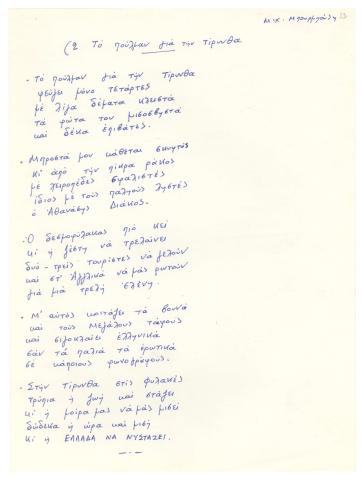 Μιχ. Μπουρμπούλη
(2 Το πούλμαν γιά τήν Τίρυνθα
- Τό πούλμαν γιά τήν Τίρυνθα
φεύγει μόνο τετάρτες
μέ λίγα δέματα κλειστά
τά φώτα του μισοσβυστά
καί δέκα ἐπιβάτες.
- Μπροστά μου κάθεται σκυφτός
κι' ἀπό τήν πίκρα ράκος
μέ χειροπέδες σφαλιστές
ἴδιος μέ τούς παληούς ληστές
ὁ Ἀθανάσης Διάκος.
- Ὁ δεσμοφύλακας πιό κεῖ
κι ἡ ζέστη νά τρελαίνει
δυό-τρεῖς τουρίστες νά γελοῦν
καί στ' Ἀγγλικά νά μᾶς ρωτοῦν
γιά μιά τρελή Ἑλένη.
- Μ' αὐτός κοιτάζει τά βουνά
καί τούς Μεγάλους τάφους
καί σιγοκλαίει ἑλληνικά
σάν τά παλιά τά ἐρωτικά
σέ κάποιους φωνογράφους.
- Στήν Τίρυνθα στίς φυλακές
τρύπια ἡ ζωή καί στάζει
κι ἡ μοίρα μας νά μᾶς μισεῖ
δώδεκα ἡ ὥρα καί μισή
κι ἡ ΕΛΛΑΔΑ ΝΑ ΝΥΣΤΑΖΕΙ.